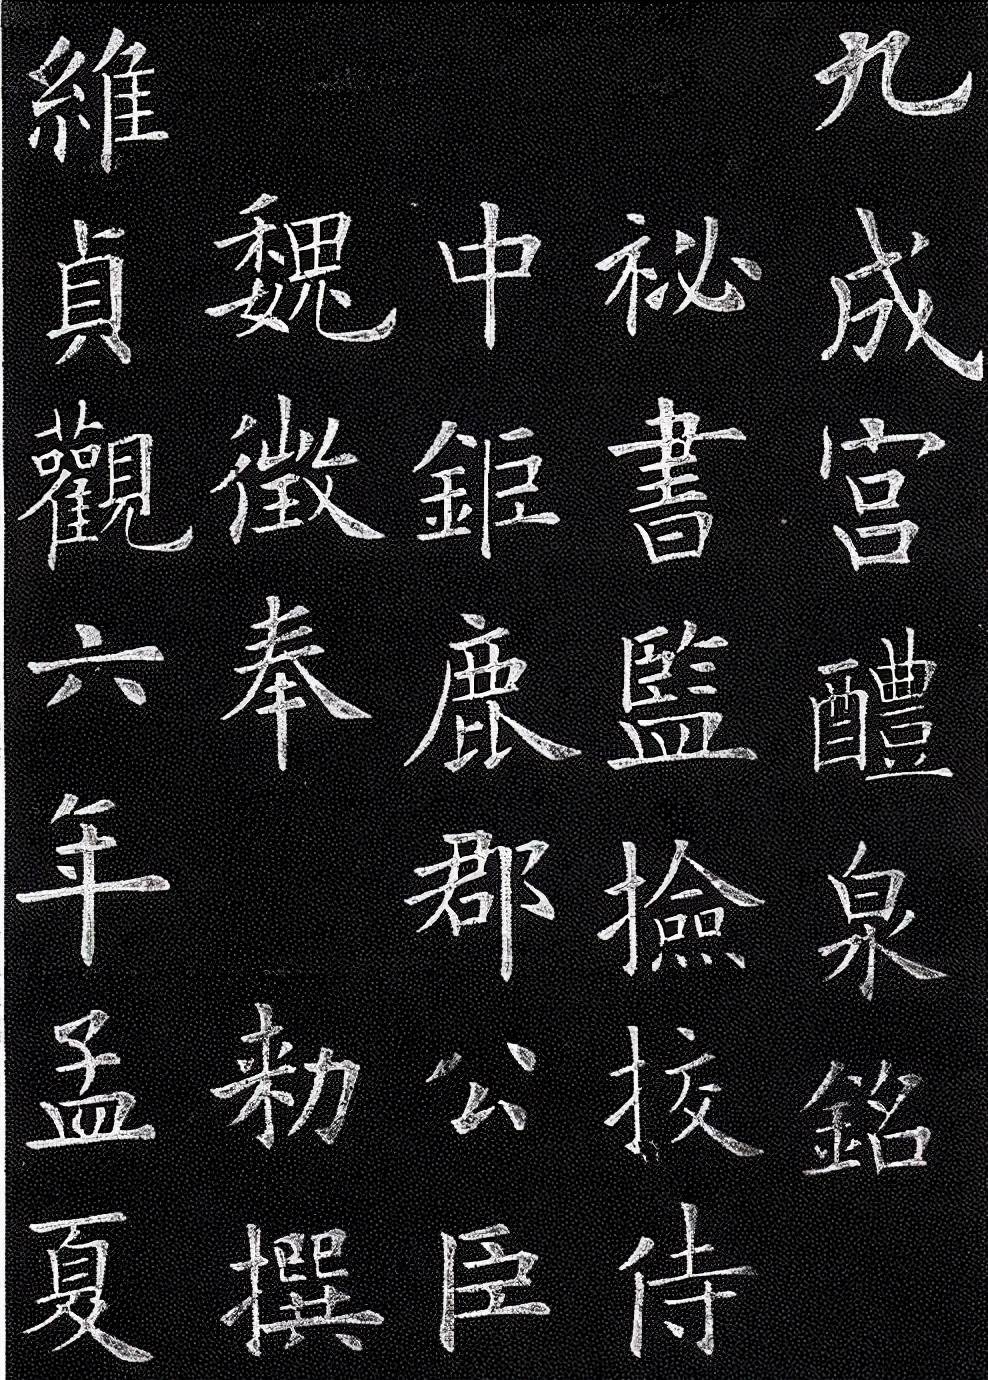 九成宮醴泉銘
祕書監撿挍侍
中鉅鹿郡公臣
魏徵奉勑撰
維貞觀六年孟夏